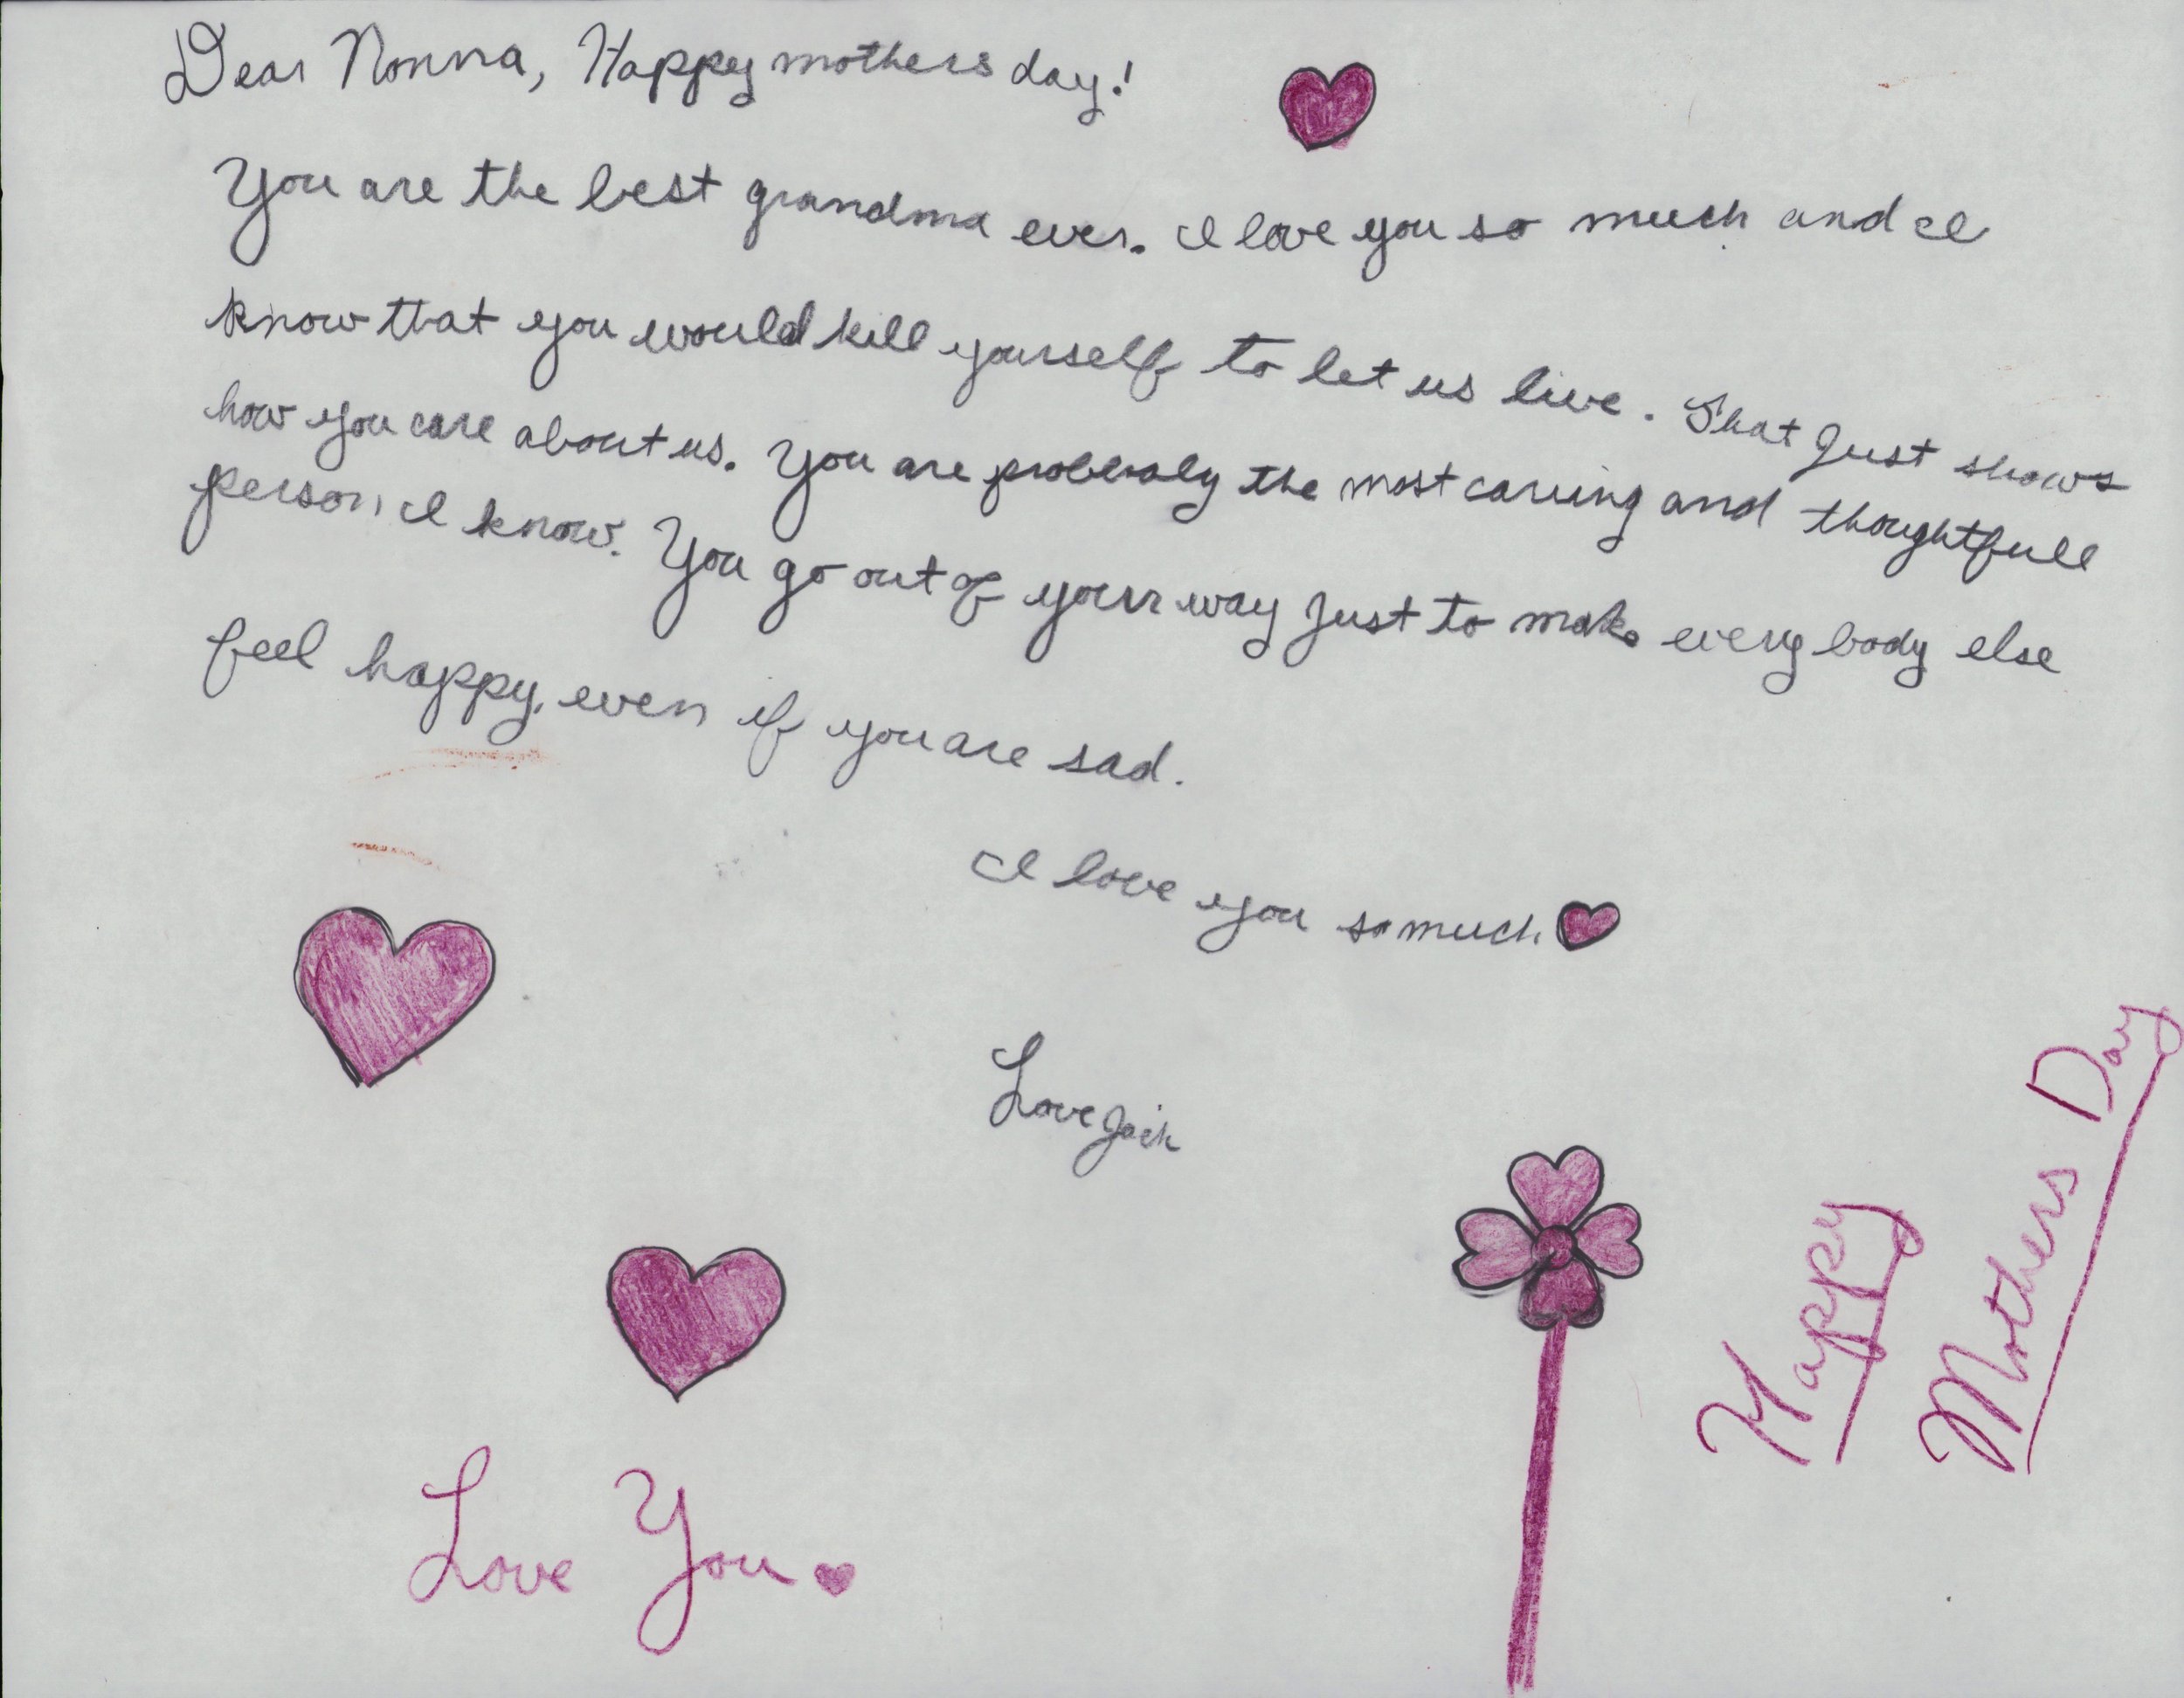 Dear Nonna, Happy mothers day!
You are the best grandma ever. I love you so much and I
know that you would kill yourself to let us live. That just shows
how you care about us. You are probbaly the most caring and thoughtfull
person I know. You go out of your way just to make every body else
feel happy, even if you are sad.
I love you so much
Love Jack
Love You
Happy
Mothers Day